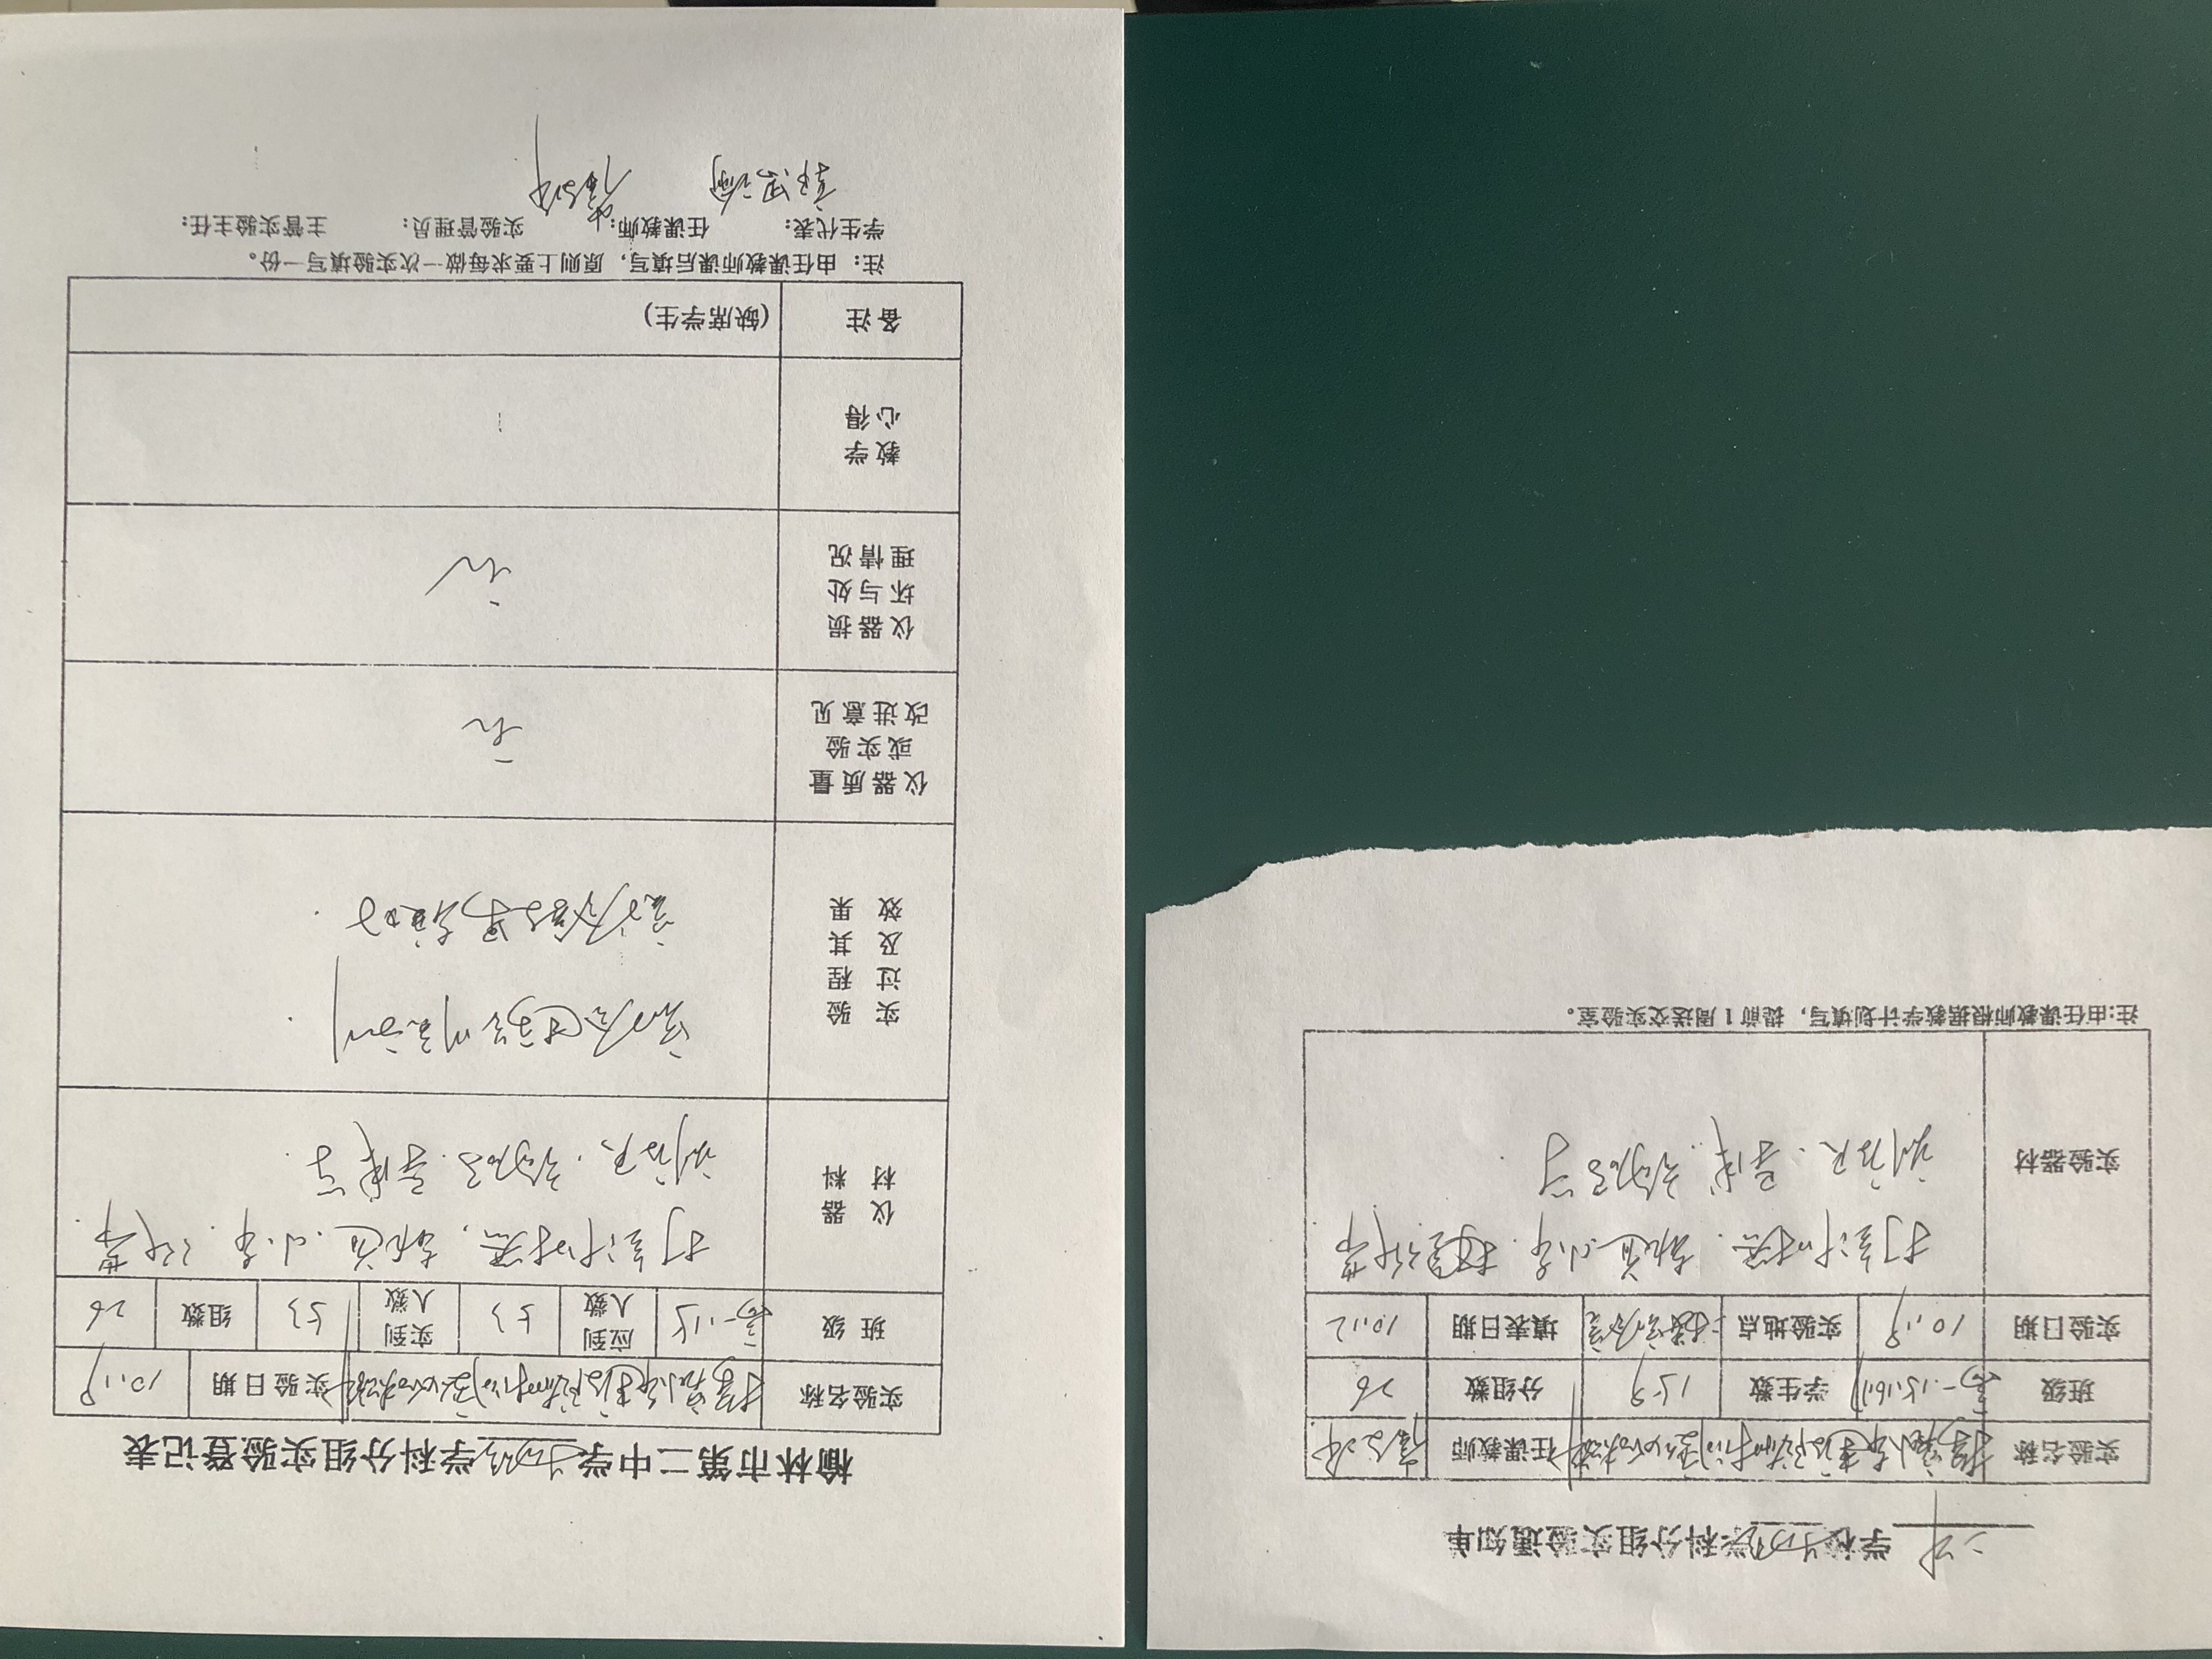 二中学校物理学科分组实验通知单
实验名称 探究小车速度随时间变化的规律 任课教师
班级 高一.15.16.17 学生数 159 分组数 26
实验日期 10.19 实验地点 二楼实验室 填表日期 10.12
实验器材 打点计时器. 轨道.小车. 纸带
刻度尺. 导线. 钩码等
注:由任课教师根据教学计划填写，提前1周送交实验室。
榆林市第二中学物理学科分组实验登记表
实验名称 探究小车速度随时间变化的规律 实验日期 10.19
班级 高一.15 应到人数 53 实到人数 53 组数 26
仪器材料 打点计时器, 轨道.小车. 纸带.
刻度尺. 钩码. 导线等.
实验过程及其效果 实验过程顺利.
实验效果较好.
仪器质量或实验改进意见 无
仪器损坏与处理情况 无
教学心得
备注 (缺席学生)
注：由任课教师课后填写，原则上要求每做一次实验填写一份。
学生代表: 任课教师: 实验管理员: 主管实验主任: